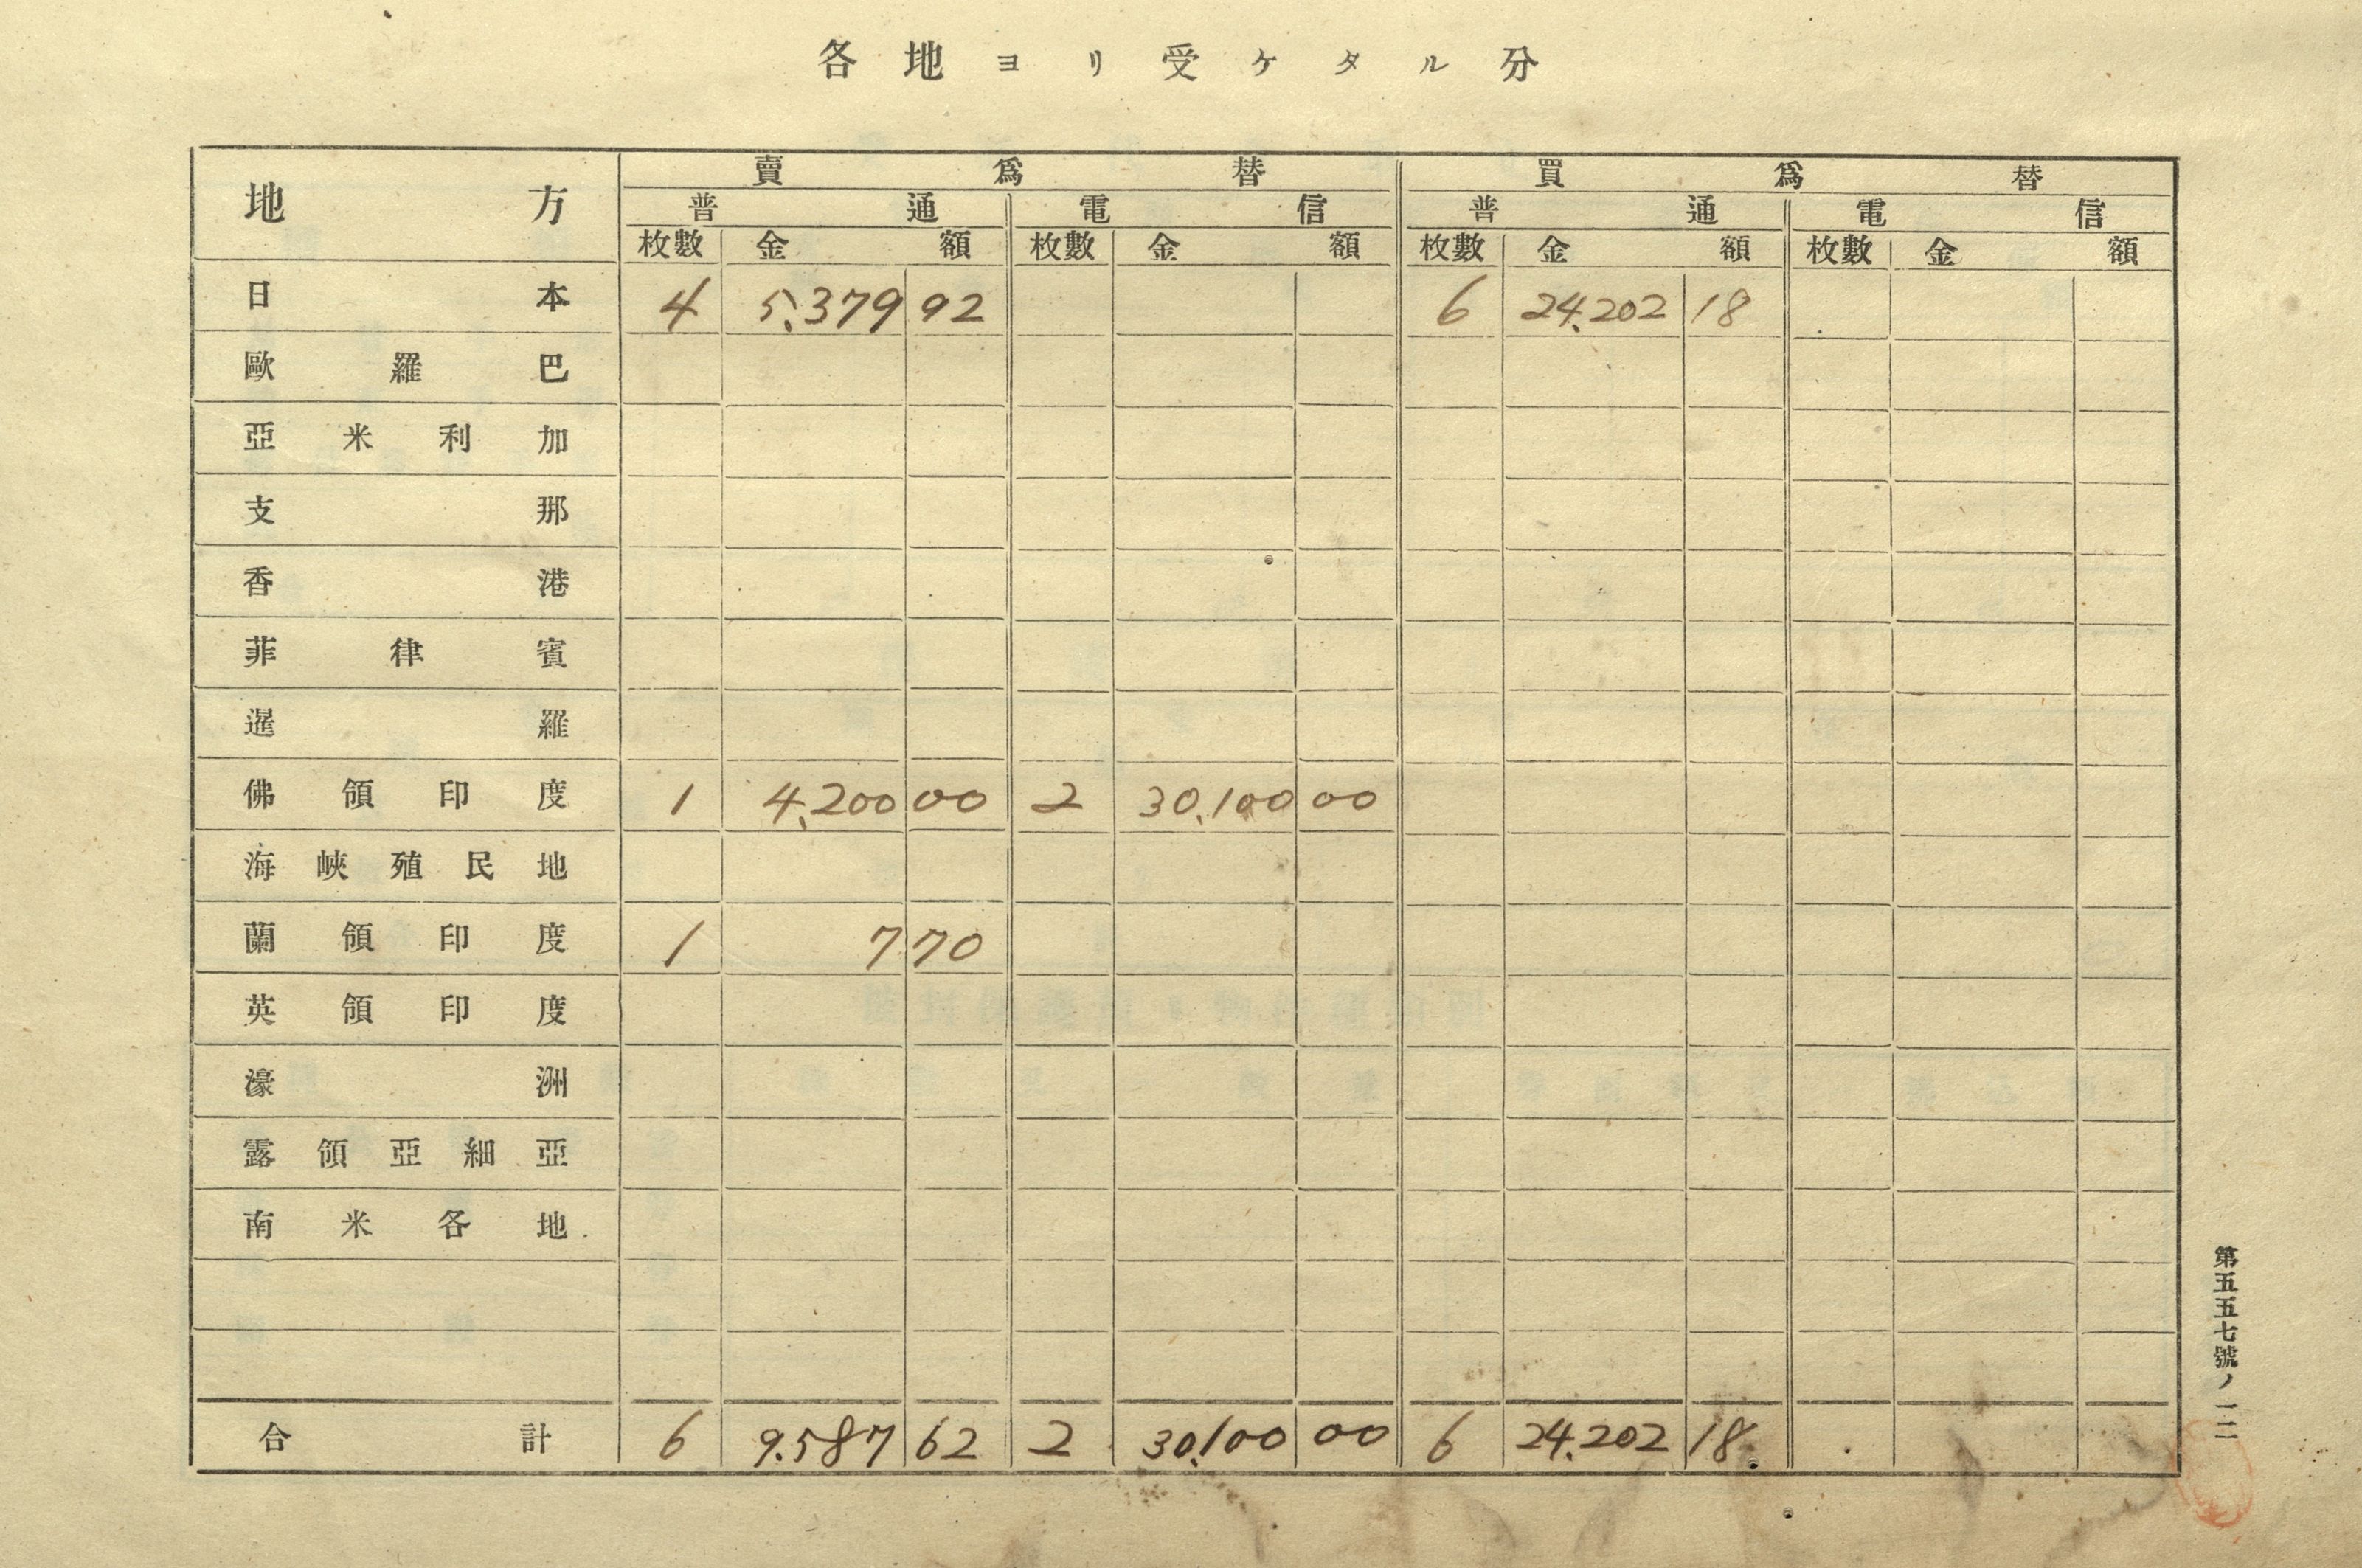 各地ヨリ受ケタル分
地方 賣爲替 買爲替
普通 電信 普通 電信
枚數 金額 枚數 金額 枚數 金額 枚數 金額
日本 4 5,379 92 6 24,202 18
歐羅巴
亞米利加
支那
香港
菲律賓
暹羅
佛領印度 1 4,200 00 2 30,100 00
海峽殖民地
蘭領印度 1 7 70
英領印度
濠洲
露領亞細亞
南米各地
合計 6 9,587 62 2 30,100 00 6 24,202 18
第五五七號ノ一二